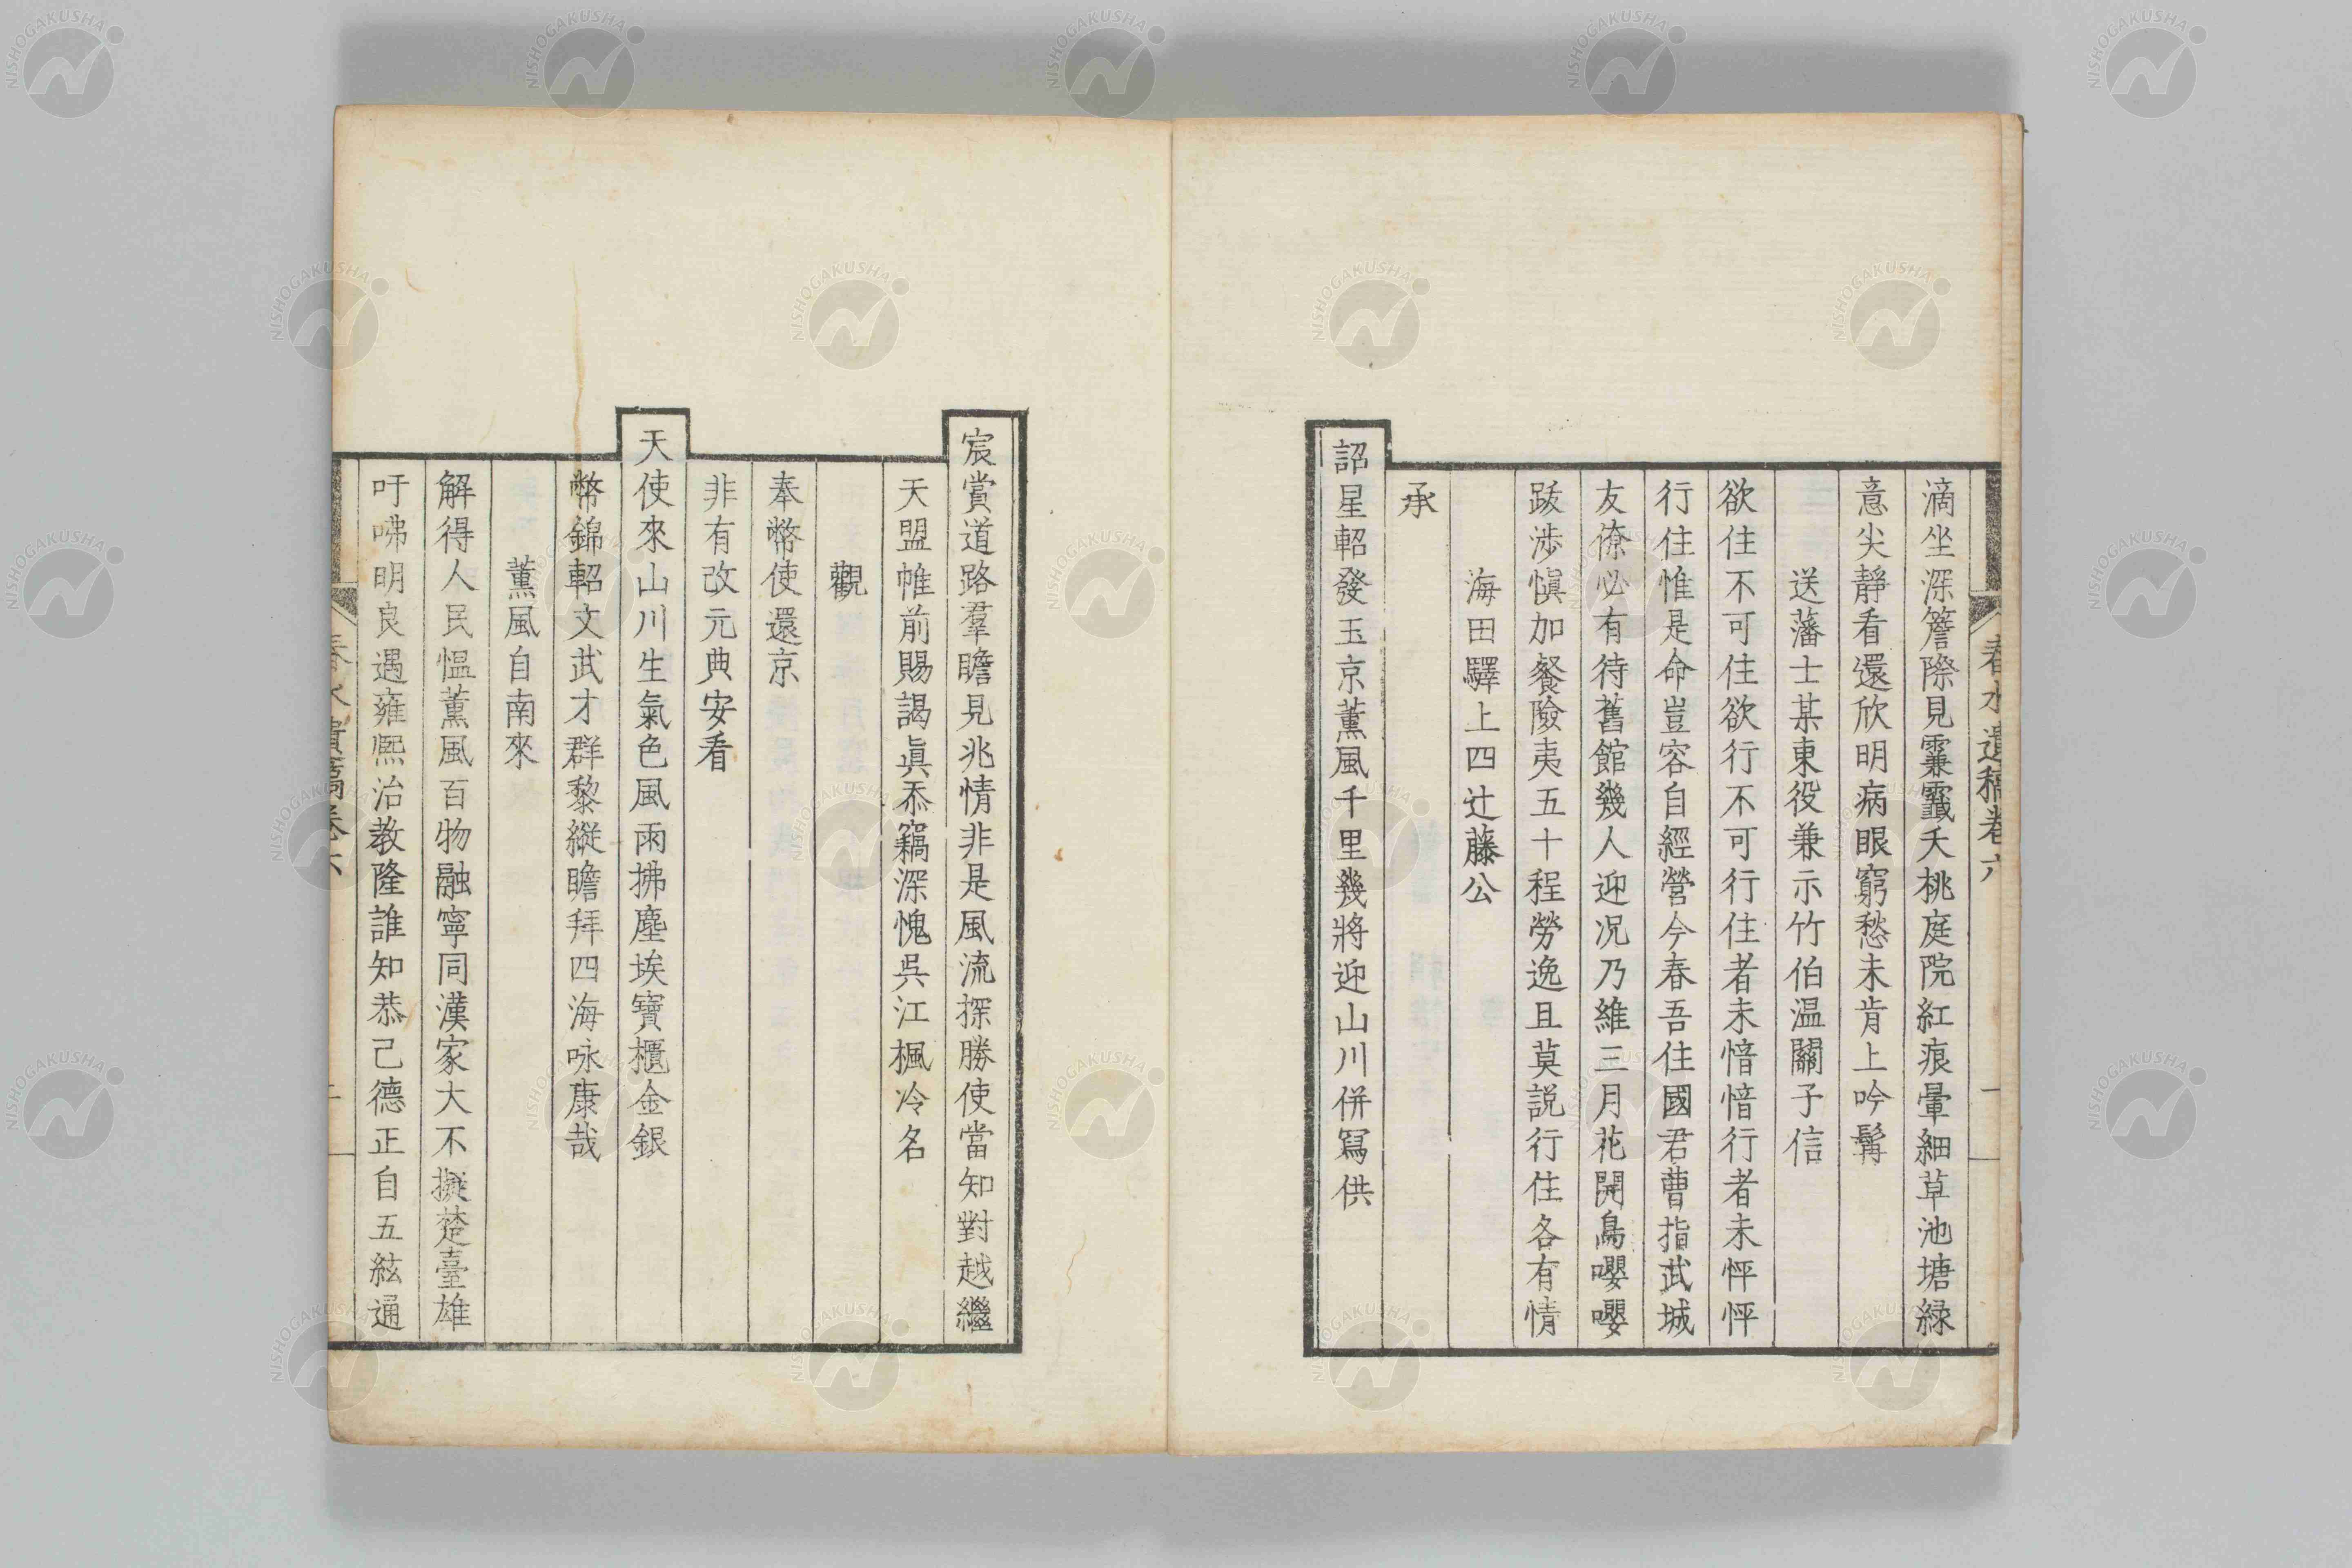 春水遺稿卷六
滴坐深簷際見霢霺夭桃庭院紅痕暈細草池塘緑
意尖靜看還欣明病眼窮愁未肯上吟髯
送藩士某東役兼示竹伯温關子信
欲住不可住欲行不可行住者未愔愔行者未怦怦
行住惟是命豈容自經營今春吾住國君曹指武城
友僚必有待舊館幾人迎况乃維三月花開鳥嚶嚶
跋渉愼加餐險夷五十程勞逸且莫説行住各有情
海田驛上四辻藤公
承
詔星軺發玉京薰風千里幾將迎山川併寫供
宸賞道路羣瞻見兆情非是風流探勝使當知對越繼
天盟帷前賜謁眞忝竊深愧呉江楓冷名
觀
奉幣使還京
非有改元典安看
天使來山川生氣色風雨拂塵埃寶櫃金銀
幣錦軺文武才群黎縱瞻拜四海咏康哉
薰風自南來
解得人民慍薰風百物融寧同漢家大不擬楚臺雄
吁咈明良遇雍熙治教隆誰知恭己德正自五絃通
春水遺稿卷六